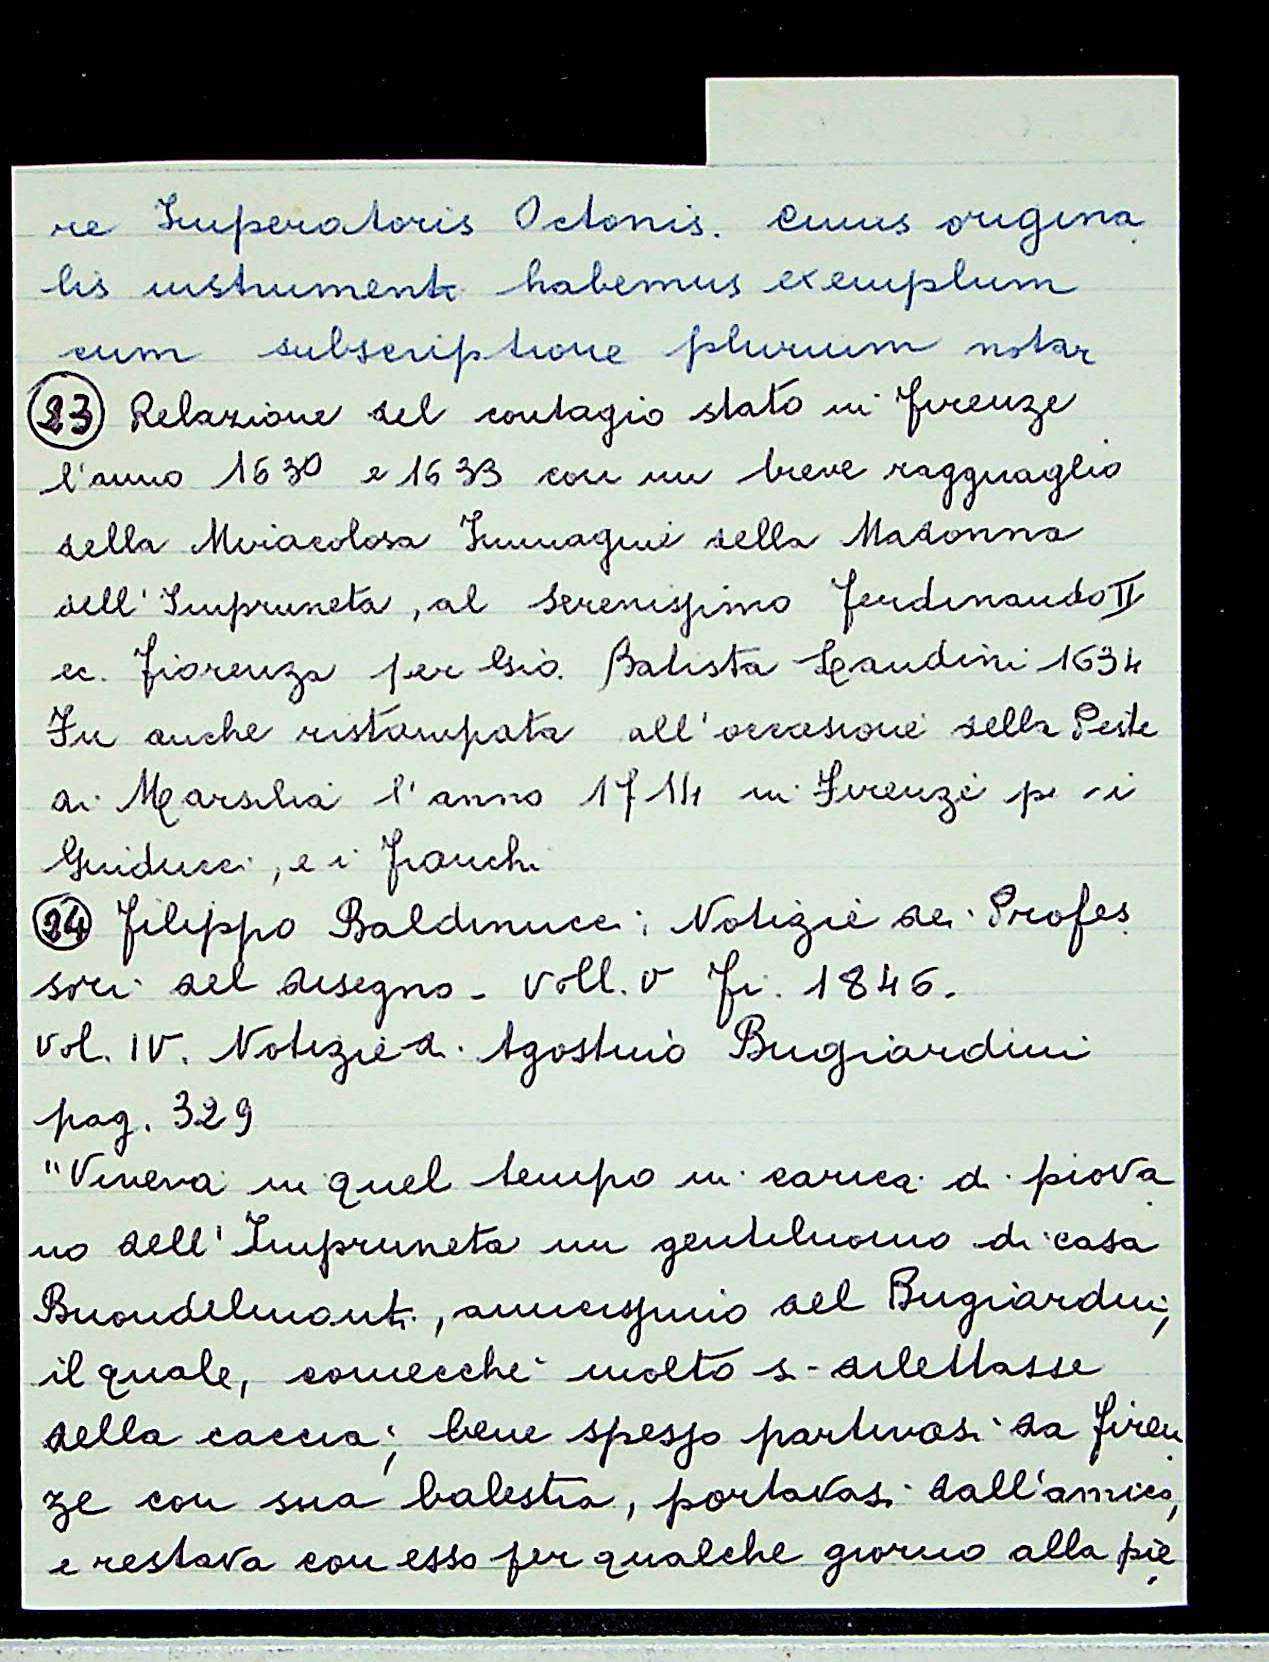 re Imperatoris Octonis. Cuius origina
lis instrumenti habemus exemplum
cum subscriptione plurium notar
23 Relazione del contagio stato in Firenze
l'anno 1630 e 1633 con un breve ragguaglio
della Miracolosa Immagine della Madonna
dell'Impruneta, al Serenissimo Ferdinando II
ec. Fiorenza per Gio. Batista Landini 1634
Fu anche ristampata all'occasione della Peste
di Marsilia l'anno 1714 in Firenze pei
Guiducci, e i Franchi
24 Filippo Baldinucci; Notizie dei Profes
sori del disegno - Voll. V Fi. 1846.
Vol. IV. Notizie di Agostino Bugiardini
pag. 329
"Viveva in quel tempo in carica di piova
no dell'Impruneta un gentiluomo di casa
Buondelmonti, amicissimo del Bugiardini,
il quale, comecché molto si dilettasse
della caccia; bene spesso partivasi da Firen
ze con sua balestra, portavasi dall'amico,
e restava con esso per qualche giorno alla pie